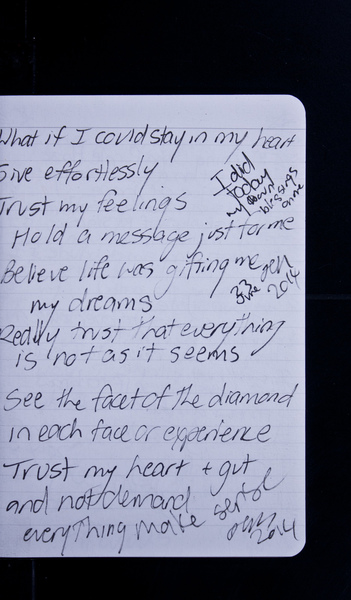 What if I could stay in my heart
Give effortlessly
Trust my feelings
Hold a message just for me
Believe life was gifting me
my dreams
Really trust that everything
is not as it seems
See the facet of the diamond
in each face or experience
Trust my heart + gut
and not demand
everything make
I did
today
my own
blessings
on me
23
June
2014
2014